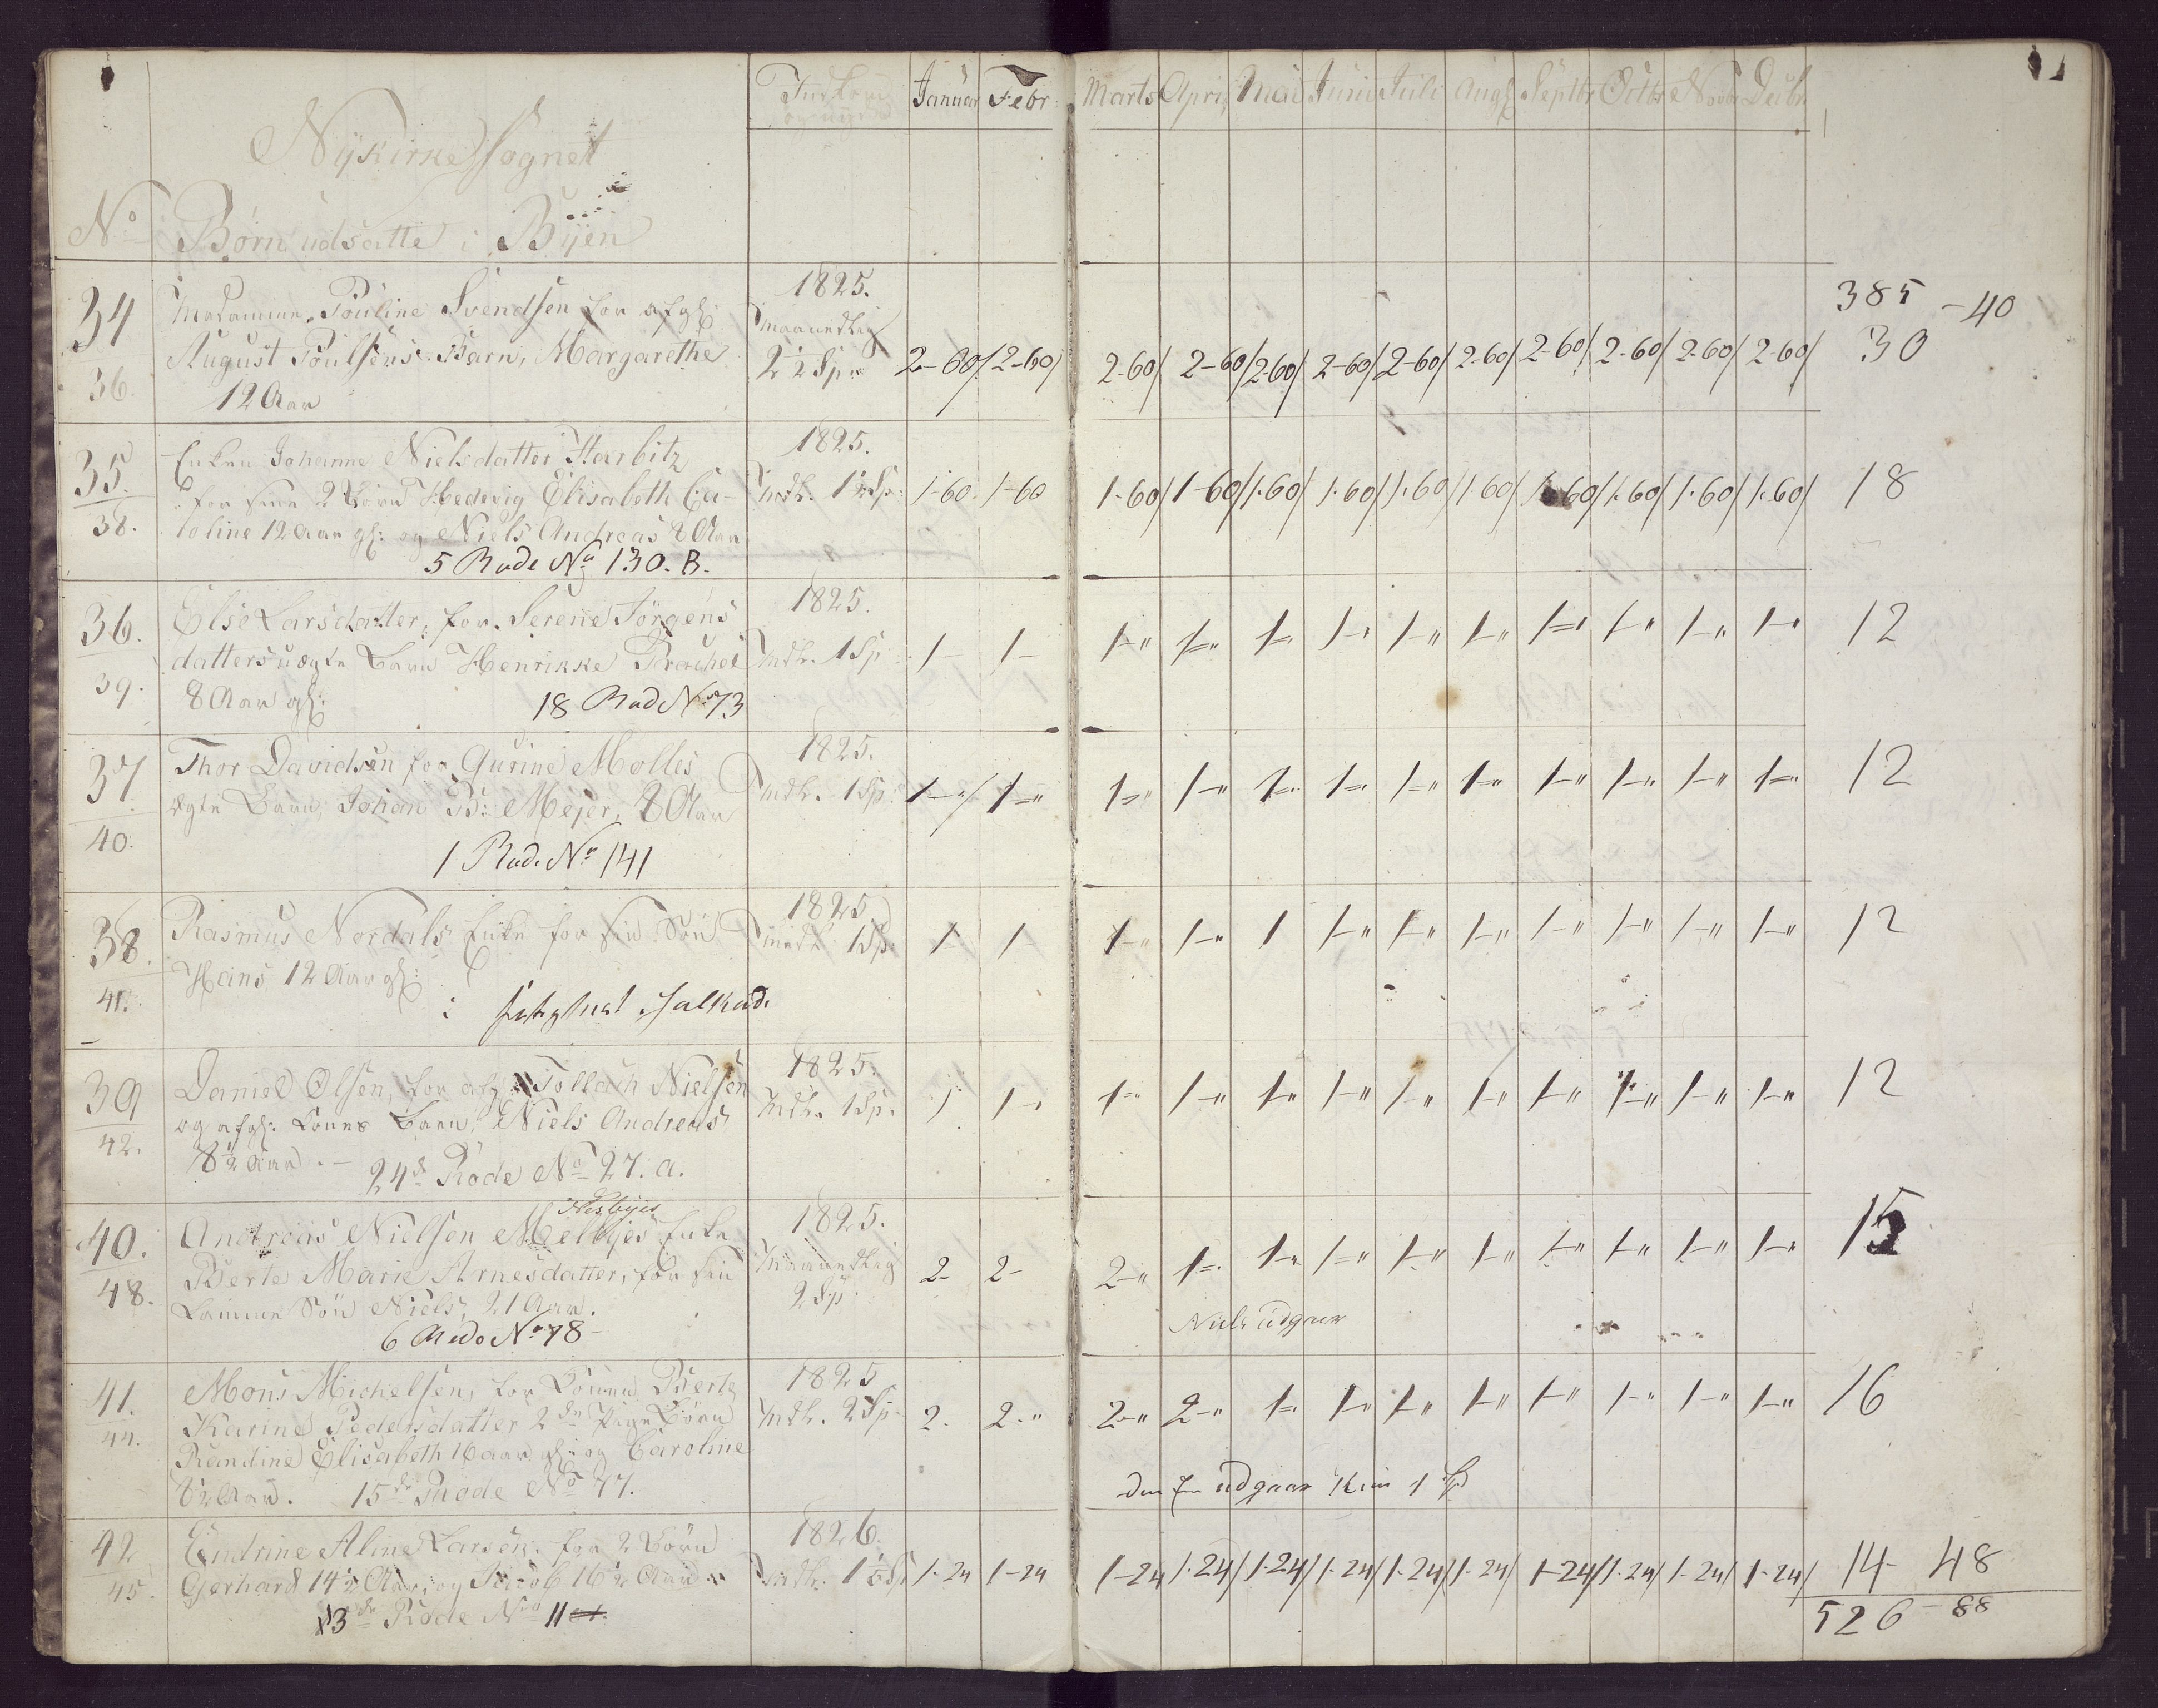 Januar Febr: Marts April Mai Juni Juli Augs Septbr Octbr Novbr Decbr
Nÿkirke Sognet
No Börn udsatte i Bÿen
34 Madamme Pouline Svendsen for afg: 1825. 385 - 40
August Poulsens Barn, Margarethe maanedtlig 2½ Sp: 2-60/ 2-60/ 2-60/ 2-60/ 2-60/ 2-60/ 2-60/ 2-60/ 2-60/ 2-60/ 2-60/ 2-60/ 30
36. 12 Aar
35. Enken Johanne Nielsdatter Harbitz 1825.
for sine 2 Börn Hedevig Elisabeth Ca- Mdl. 1½ Sp: 1-60 1-60 1-60/ 1-60/ 1-60/ 1-60/ 1-60/ 1-60/ 1-60/ 1-60/ 1-60/ 1-60/ 18
38. roline 12 Aar gl: og Niels Andreas 8 Aar
5 Rode No 130. B.
36. Else Larsdatter, for Serene Jörgens 1825.
datters uægte Barn Henrikke Rachel Mdl. 1 Sp 1- 1- 1-" 1-" 1-" 1-" 1-" 1-" 1-" 1-" 1-" 1-" 12
39. 8 Aar gl: 18 Rode No 73
37 Thor Davidsen for Gurine Molles 1825.
ægte Barn, Johan B: Mejer, 8 Aar Mdl. 1 Sp: 1-"/ 1-" 1-" 1-" 1-" 1-" 1-" 1-" 1-" 1-" 1-" 1-" 12
40. 1 Rode No 141
38. Rasmus Nordals Enke for sin Sön 1825
Mdl. 1 Sp: 1 1- 1-" 1-" 1 1-" 1-" 1-" 1-" 1-" 1-" 1-" 12
41. Hans 12 Aar gl:
39 Daniel Olsen, for afg: Tollach Nielsen 1825.
og afgl: Kones Barn, Niels Andreas Mdl. 1 Sp. 1 1-" 1-" 1-" 1-" 1-" 1-" 1-" 1-" 1-" 1-" 1-" 12
42. 8½ Aar. - 24de Rode No 27. a.
40. Andreas Nielsen Melbÿes Enke 1825. 15
Berte Marie Arnesdatter, for sin Maanedtlig 2 Sp. 2- 2- 2-" 1-" 1-" 1-" 1-" 1-" 1-" 1-" 1-" 1-"
48. Lamme Sön Niels, 21 Aar. Niels udgaar
6 Rode No 78
41. Mons Michelsen, for Konen Berte 1825
Karine Pedersdatter 2de Pige Börn Mdl. 2 Sp. 2. 2-" 2-" 2-" 1-" 1-" 1-" 1-" 1-" 1-" 1-" 1-" 16
44. Randine Elisabeth 16 aar gl: og Caroline
8½ Aar. 15de Rode No 77. den udgaar
42 Endrine Aline Larsen for 2 Börn 1826.
Gerhard 14½ Aar, og Jacob 16½ Aar Mdl. 1-24 1-24 1-24 1-24/ 1-24/ 1-24/ 1-24/ 1-24/ 1-24/ 1-24/ 1-24/ 1-24/ 14 - 48
45. 13de Rode No 11
526 - 88